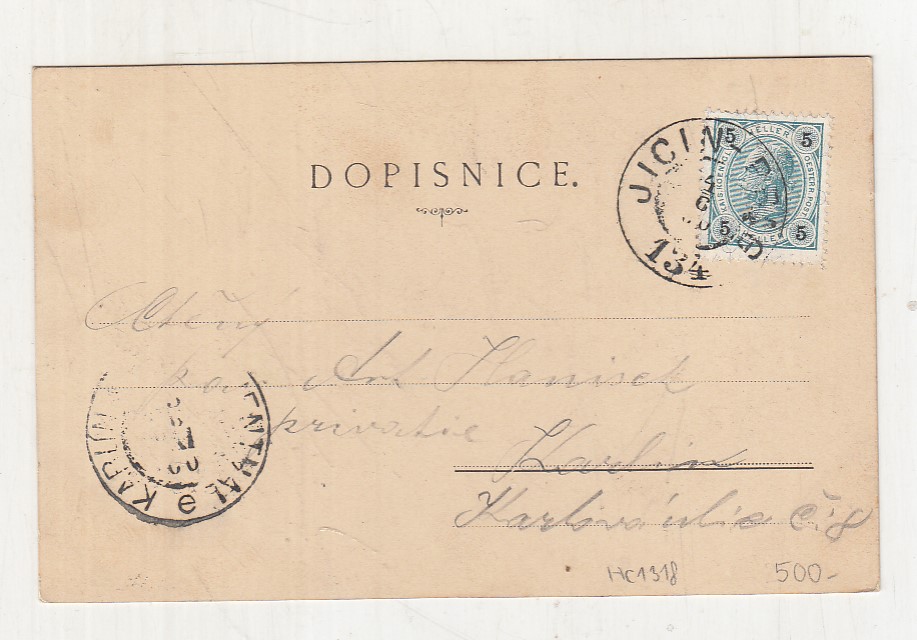 DOPISNICE.
JICIN
134
5 HELLER 5
KAIS. KOENIGL. OESTERR. POST
5 HELLER 5
Ctěný
pan Ant Hanisch
privatie
Karlin
Karlova ulice Či 8
KARLIN
ENTHAL
e
HC1318
500-